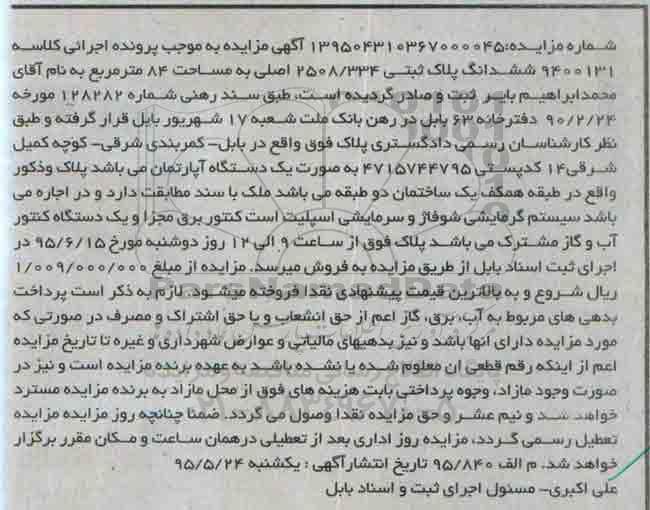 شماره مزایده:۱۳۹۵۰۴۳۱۰۳۶۷۰۰۰۰۴۵ آگهی مزایده به موجب پرونده اجرائی کلاسه
۹۴۰۰۱۳۱ ششدانگ پلاک ثبتی ۲۵۰۸/۳۳۴ اصلی به مساحت ۸۴ مترمربع به نام آقای
محمدابراهیم بابر ثبت و صادر گردیده است، طبق سند رهنی شماره ۱۲۸۲۸۲ مورخه
۹۰/۲/۲۴ دفترخانه ۶۳ بابل در رهن بانک ملت شعبه ۱۷ شهریور بابل قرار گرفته و طبق
نظر کارشناسان رسمی دادگستری پلاک فوق واقع در بابل- کمربندی شرقی- کوچه کمیل
شرقی۱۴ کدپستی ۴۷۱۵۷۴۴۷۹۵ به صورت یک دستگاه آپارتمان می باشد پلاک وذکور
واقع در طبقه همکف یک ساختمان دو طبقه می باشد ملک با سند مطابقت دارد و در اجاره می
باشد سیستم گرمایشی شوفاژ و سرمایشی اسپلیت است کنتور برق مجزا و یک دستگاه کنتور
آب و گاز مشترک می باشد پلاک فوق از ساعت ۹ الی ۱۲ روز دوشنبه مورخ ۹۵/۶/۱۵ در
اجرای ثبت اسناد بابل از طریق مزایده به فروش میرسد. مزایده از مبلغ ۱/۰۰۹/۰۰۰/۰۰۰
ریال شروع و به بالاترین قیمت پیشنهادی نقدا فروخته میشود. لازم به ذکر است پرداخت
بدهی های مربوط به آب، برق، گاز اعم از حق انشعاب و یا حق اشتراک و مصرف در صورتی که
مورد مزایده دارای انها باشد و نیز بدهیهای مالیاتی و عوارض شهرداری و غیره تا تاریخ مزایده
اعم از اینکه رقم قطعی ان معلوم شده یا نشده باشد به عهده برنده مزایده است و نیز در
صورت وجود مازاد، وجوه پرداختی بابت هزینه های فوق از محل مازاد به برنده مزایده مسترد
خواهد شد و نیم عشر و حق مزایده نقدا وصول می گردد. ضمنا چنانچه روز مزایده مزایده
تعطیل رسمی گردد، مزایده روز اداری بعد از تعطیلی درهمان ساعت و مکان مقرر برگزار
خواهد شد. م الف ۹۵/۸۴۰ تاریخ انتشارآگهی : یکشنبه ۹۵/۵/۲۴
علی اکبری- مسئول اجرای ثبت و اسناد بابل